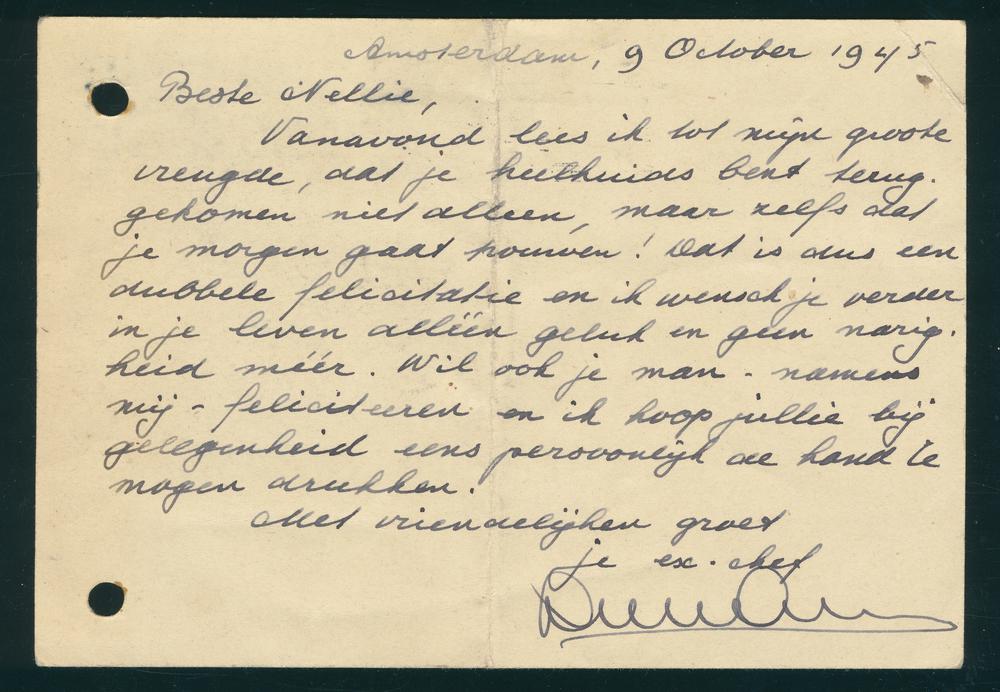 Amsterdam, 9 October 1945
Beste Nellie,
Vanavond lees ik tot mijn groote
vreugde, dat je heelhuids bent terug.
gekomen niet alleen, maar zelfs dat
je morgen gaat trouwen! Dat is dus een
dubbele felicitatie en ik wensch je verder
in je leven alléén geluk en geen narig.
heid méér. Wil ook je man - namens
mij - feliciteeren en ik hoop jullie bij
gelegenheid eens persoonlijk de hand te
mogen drukken.
Met vriendelijken groet
je ex. chef